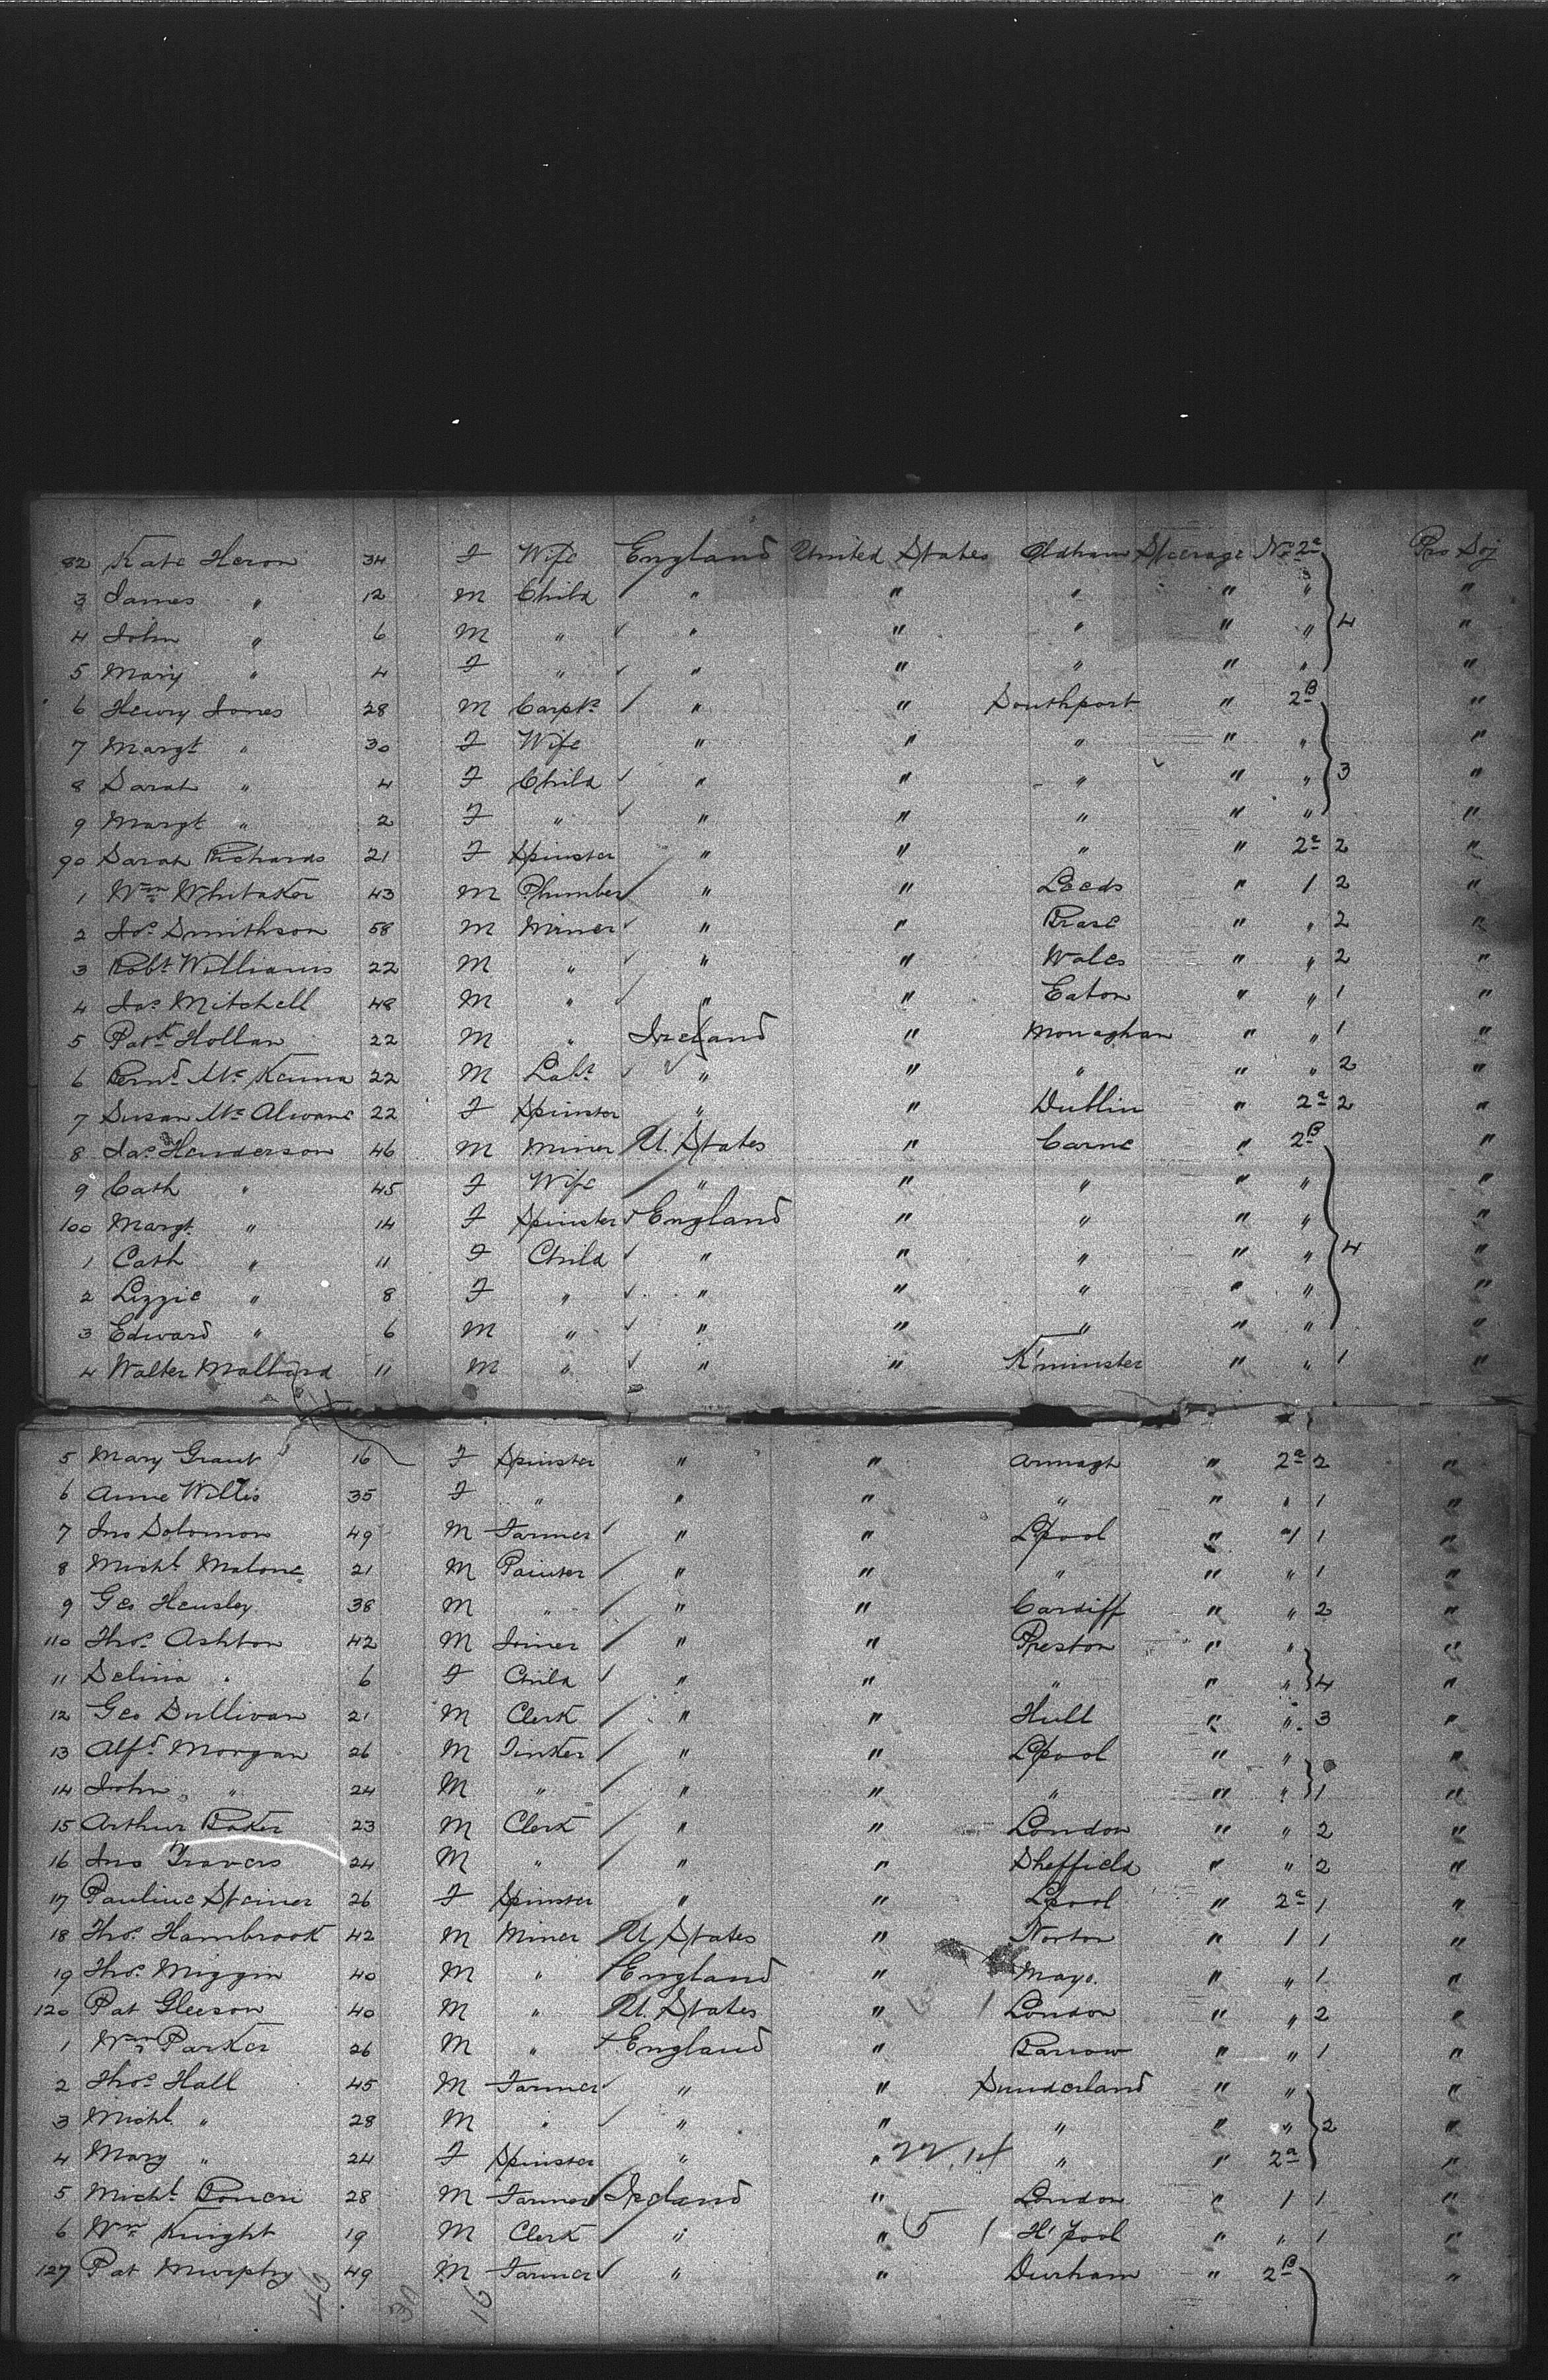 82 Kate Heron 34 F Wife England United States Oldham Steerage No 2a Pro Soj
3 James " 12 M Child " " " " " "
4 John " 6 M " " " " " " 4 "
5 Mary " 4 F " " " " " " "
6 Henry Jones 28 M Carptr " " Southport " 2B "
7 Margt " 30 F Wife " " " " " "
8 Sarah " 4 F Child " " " " " 3 "
9 Margt " 2 F " " " " " " "
90 Sarah Richards 21 F Spinster " " " " 2a 2 "
1 Wm Whitaker 43 M Plumber " " Leeds " 1 2 "
2 Jos Smithson 58 M Miner " " " " 2 "
3 Robt Williams 22 M " " " Wales " " 2 "
4 Jas Mitchell 48 M " " " Eaton " " 1 "
5 Patk Hollan 22 M " Ireland " Monaghan " " 1 "
6 Bernd McKenna 22 M Labr " " " " " 2 "
7 Susan McAlwane 22 F Spinster " " Dublin " 2a 2 "
8 Jas Henderson 46 M Miner U. States " Carne " 2B "
9 Cath " 45 F Wife " " " " " "
100 Margt " 14 F Spinster England " " " " "
1 Cath " 11 F Child " " " " " 4 "
2 Lizzie " 8 F " " " " " " "
3 Edward " 6 M " " " " " " "
4 Walter Mallard 11 M " " " K'minster " " 1 "
5 Mary Grant 16 F Spinster " " Armagh " 2a 2 "
6 Anne Willis 35 F " " " " " " 1 "
7 Jno Solomon 49 M Farmer " " L'pool " 1 1 "
8 Michl Malone 21 M Painter " " " " " 1 "
9 Geo Hensley 38 M " " " Cardiff " " 2 "
110 Thos Ashton 42 M Joiner " " Preston " " "
11 Selina " 6 F Child " " " " " 4 "
12 Geo Sullivan 21 M Clerk " " Hull " " 3 "
13 Alfd Morgan 26 M Tinker " " L'pool " " "
14 John " 24 M " " " " " " 1 "
15 Arthur Baker 23 M Clerk " " London " " 2 "
16 Jno Travers 24 M " " " Sheffield " " 2 "
17 Pauline Steiner 26 F Spinster " " L'pool " 2a 1 "
18 Thos Hambrook 42 M Miner U States " Norton " 1 1 "
19 Thos Miggin 40 M " England " Mayo. " " 1 "
120 Pat Gleeson 40 M " U. States " London " " 2 "
1 Wm Parker 26 M " England " Barrow " " 1 "
2 Thos Hall 45 M Farmer " " Sunderland " " "
3 Michl " 28 M " " " " " " 2 "
4 Mary " 24 F Spinster " " " " 2a "
5 Michl 28 M Farmer Ireland " London " 1 1 "
6 Wm Knight 19 M Clerk " " H'pool " " 1 "
127 Pat Murphy 49 M Farmer " " Durham " 2B "